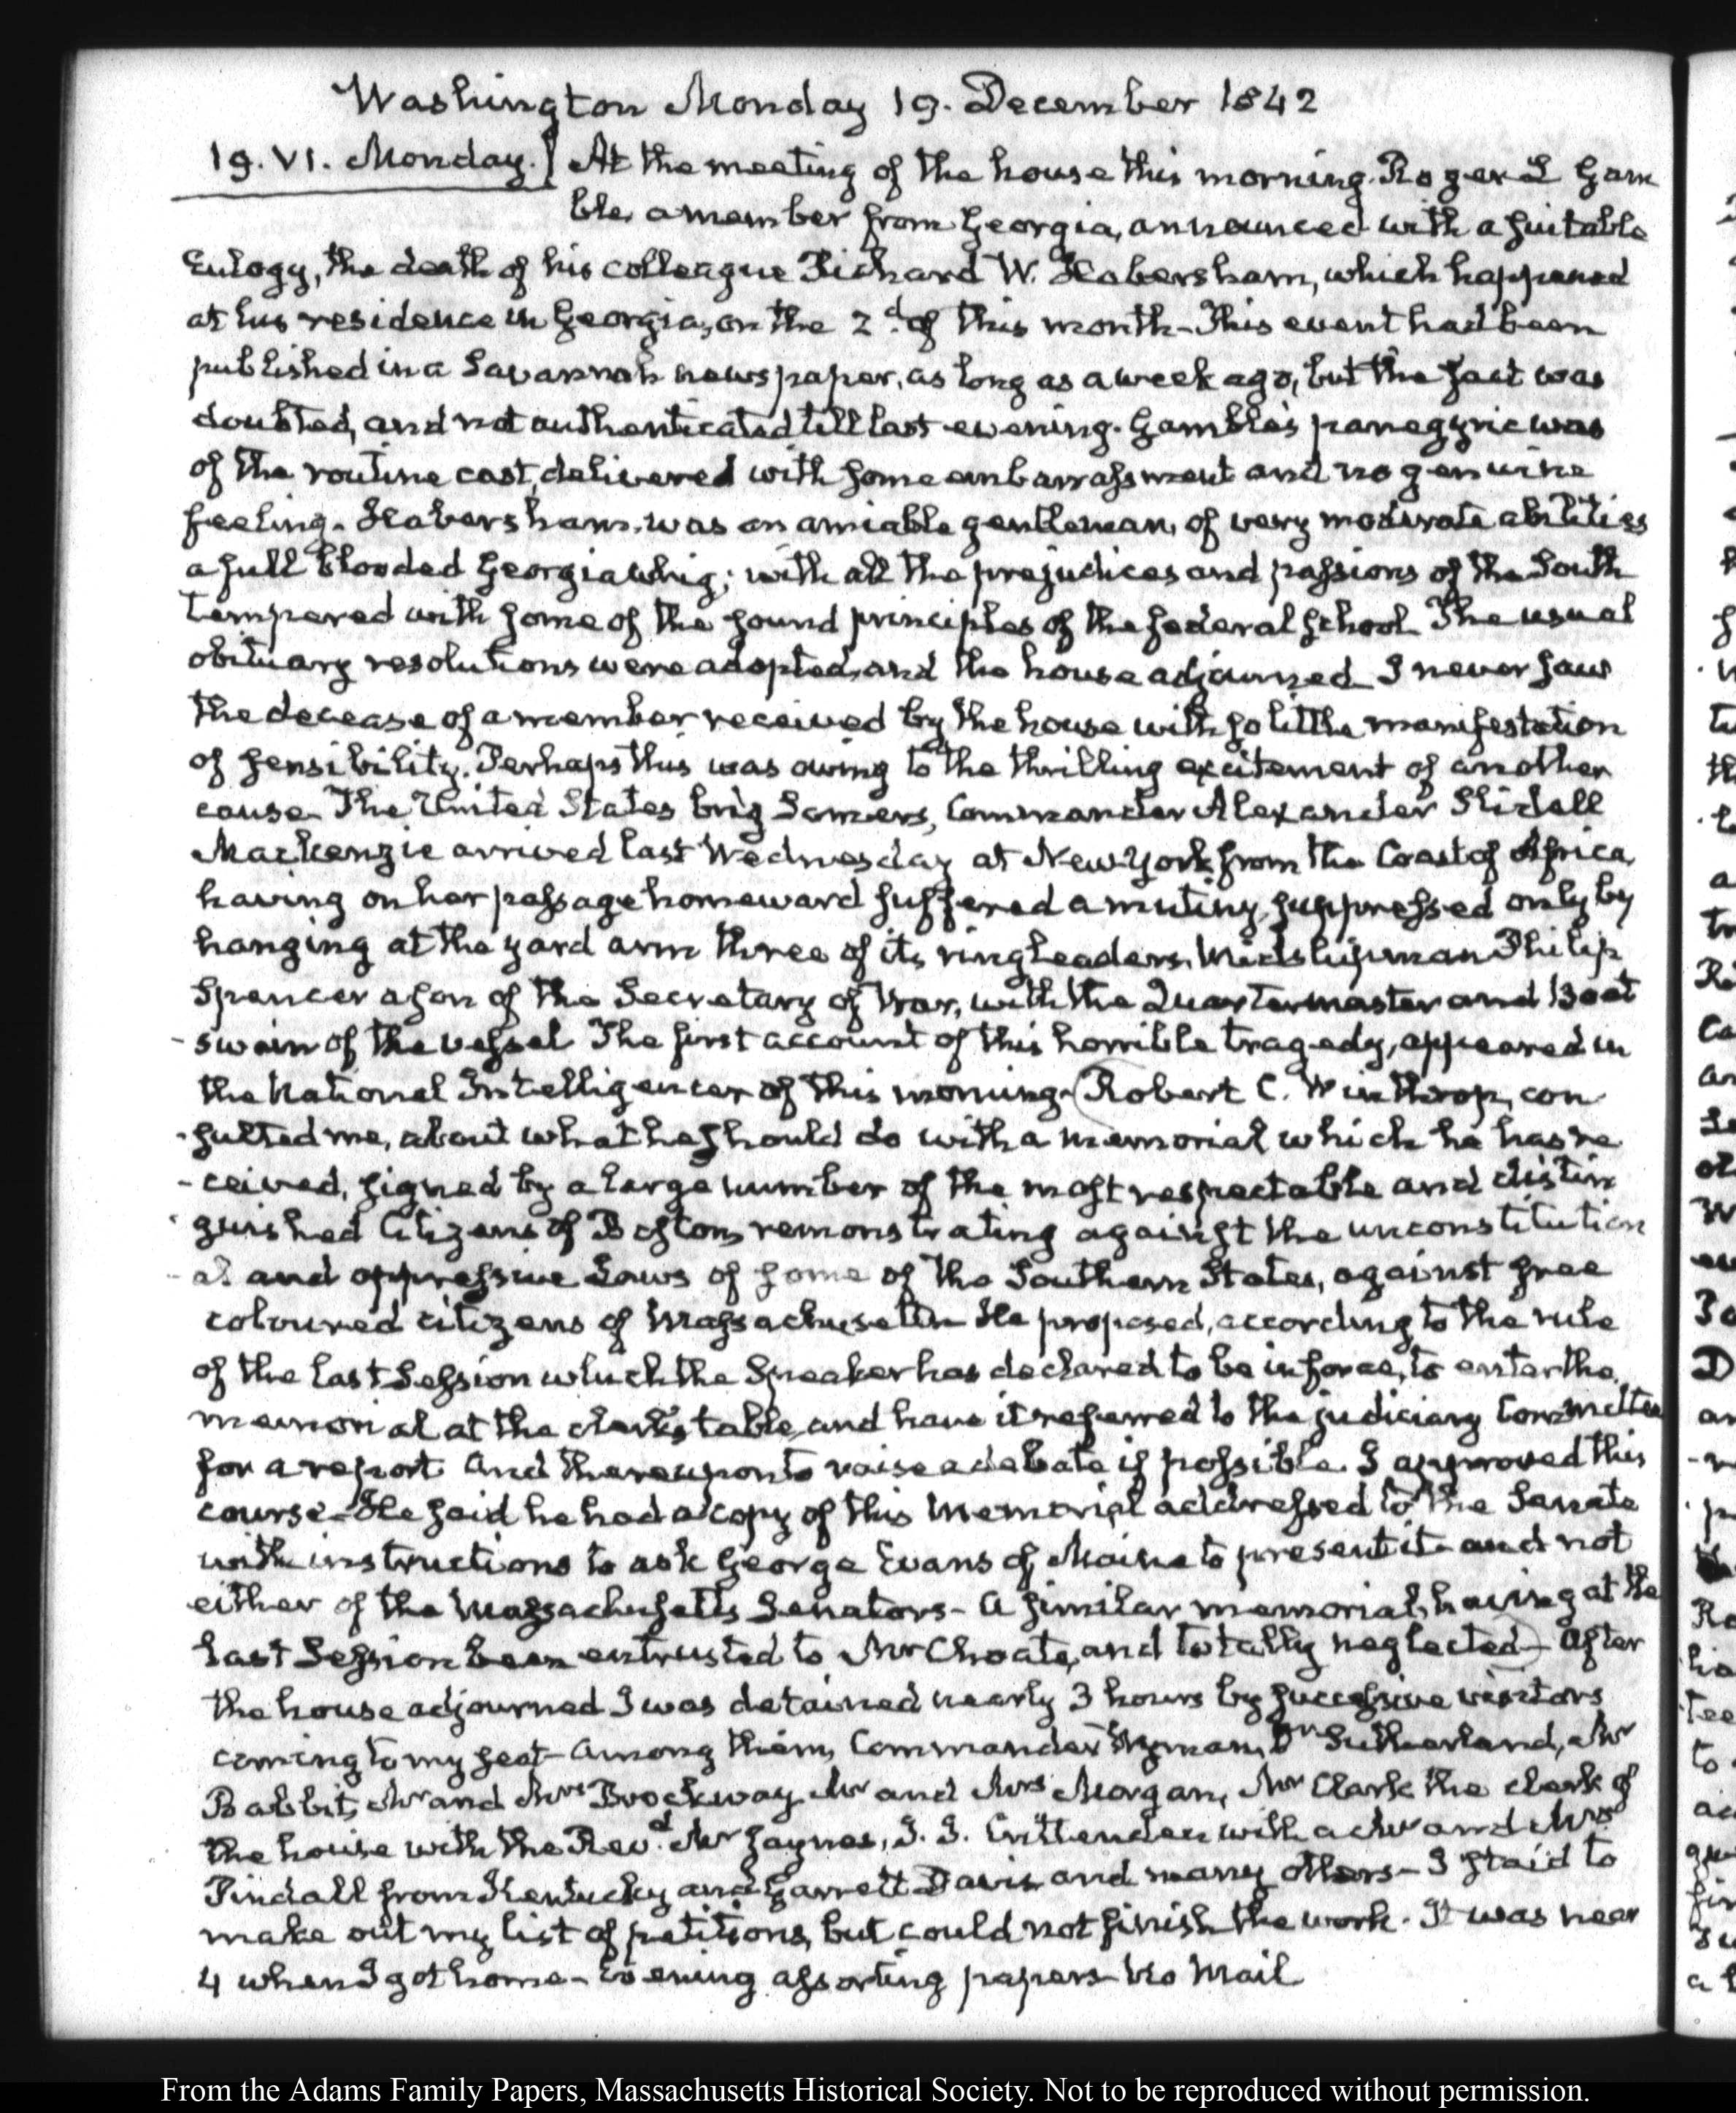 Washington Monday 19. December 1842
19. VI. Monday. } At the meeting of the house this morning. Roger L Gam
ble, a member from Georgia, announced with a suitable
Eulogy, the death of his colleague Richard W. Habersham, which happened
at his residence in Georgia, on the 2d. of this month - This event had been
published in a Savannah newspaper, as long as a week ago, but the fact was
doubted, and not authenticated till last evening. Gamble's panegyric was
of the routine cast, delivered with some embarrassment and no genuine
feeling. Habersham was an amiable gentleman, of very moderate abilities
a full blooded Georgia whig; with all the prejudices and passions of the South
tempered with some of the sound principles of the federal school. The usual
obituary resolutions were adopted, and the house adjourned. I never saw
the decease of a member received by the house with so little manifestation
of sensibility. Perhaps this was owing to the thrilling excitement of another
cause. The United States brig Somers, Commander Alexander Slidell
Mackenzie arrived last Wednesday at New York from the Coast of Africa,
having on her passage homeward suffered a mutiny, suppressed only by
hanging at the yard arm three of its ringleaders, Midshipman Philip
Spencer a son of the Secretary of War, with the Quartermaster and Boat
-swain of the vessel. The first account of this horrible tragedy, appeared in
the National Intelligencer of this morning. (Robert C. Winthrop, con
-sulted me, about what he should do with a memorial which he has re
-ceived, signed by a large number of the most respectable and distin
-guished Citizens of Boston, remonstrating against the unconstitution
-al and oppressive Laws of some of the Southern States, against free
coloured citizens of Massachusetts. He proposed, according to the rule
of the last Session which the Speaker has declared to be in force, to enter the
memorial at the clerk's table, and have it referred to the judiciary Committee
for a report and thereupon to raise a debate if possible. I approved this
course. He said he had a copy of this Memorial addressed to the Senate
with instructions to ask George Evans of Maine to present it - and not
either of the Massachusetts Senators - a similar memorial, having at the
last Session been entrusted to Mr Choate, and totally neglected) - After
the house adjourned I was detained nearly 3 hours by successive visitors
coming to my seat - among them, Commander Wyman, Dr Sutherland, Mr
Babbit, Mr and Mrs Brockway Mr and Mrs Morgan, Mr Clark the clerk of
the house with the Revd. Mr Jaynes, J. J. Crittenden with a Mr and Mrs
Tindall from Kentucky and Garrett Davis and many others - I staid to
make out my list of petitions, but could not finish the work. It was near
4 when I got home - Evening assorting papers - No Mail
From the Adams Family Papers, Massachusetts Historical Society. Not to be reproduced without permission.